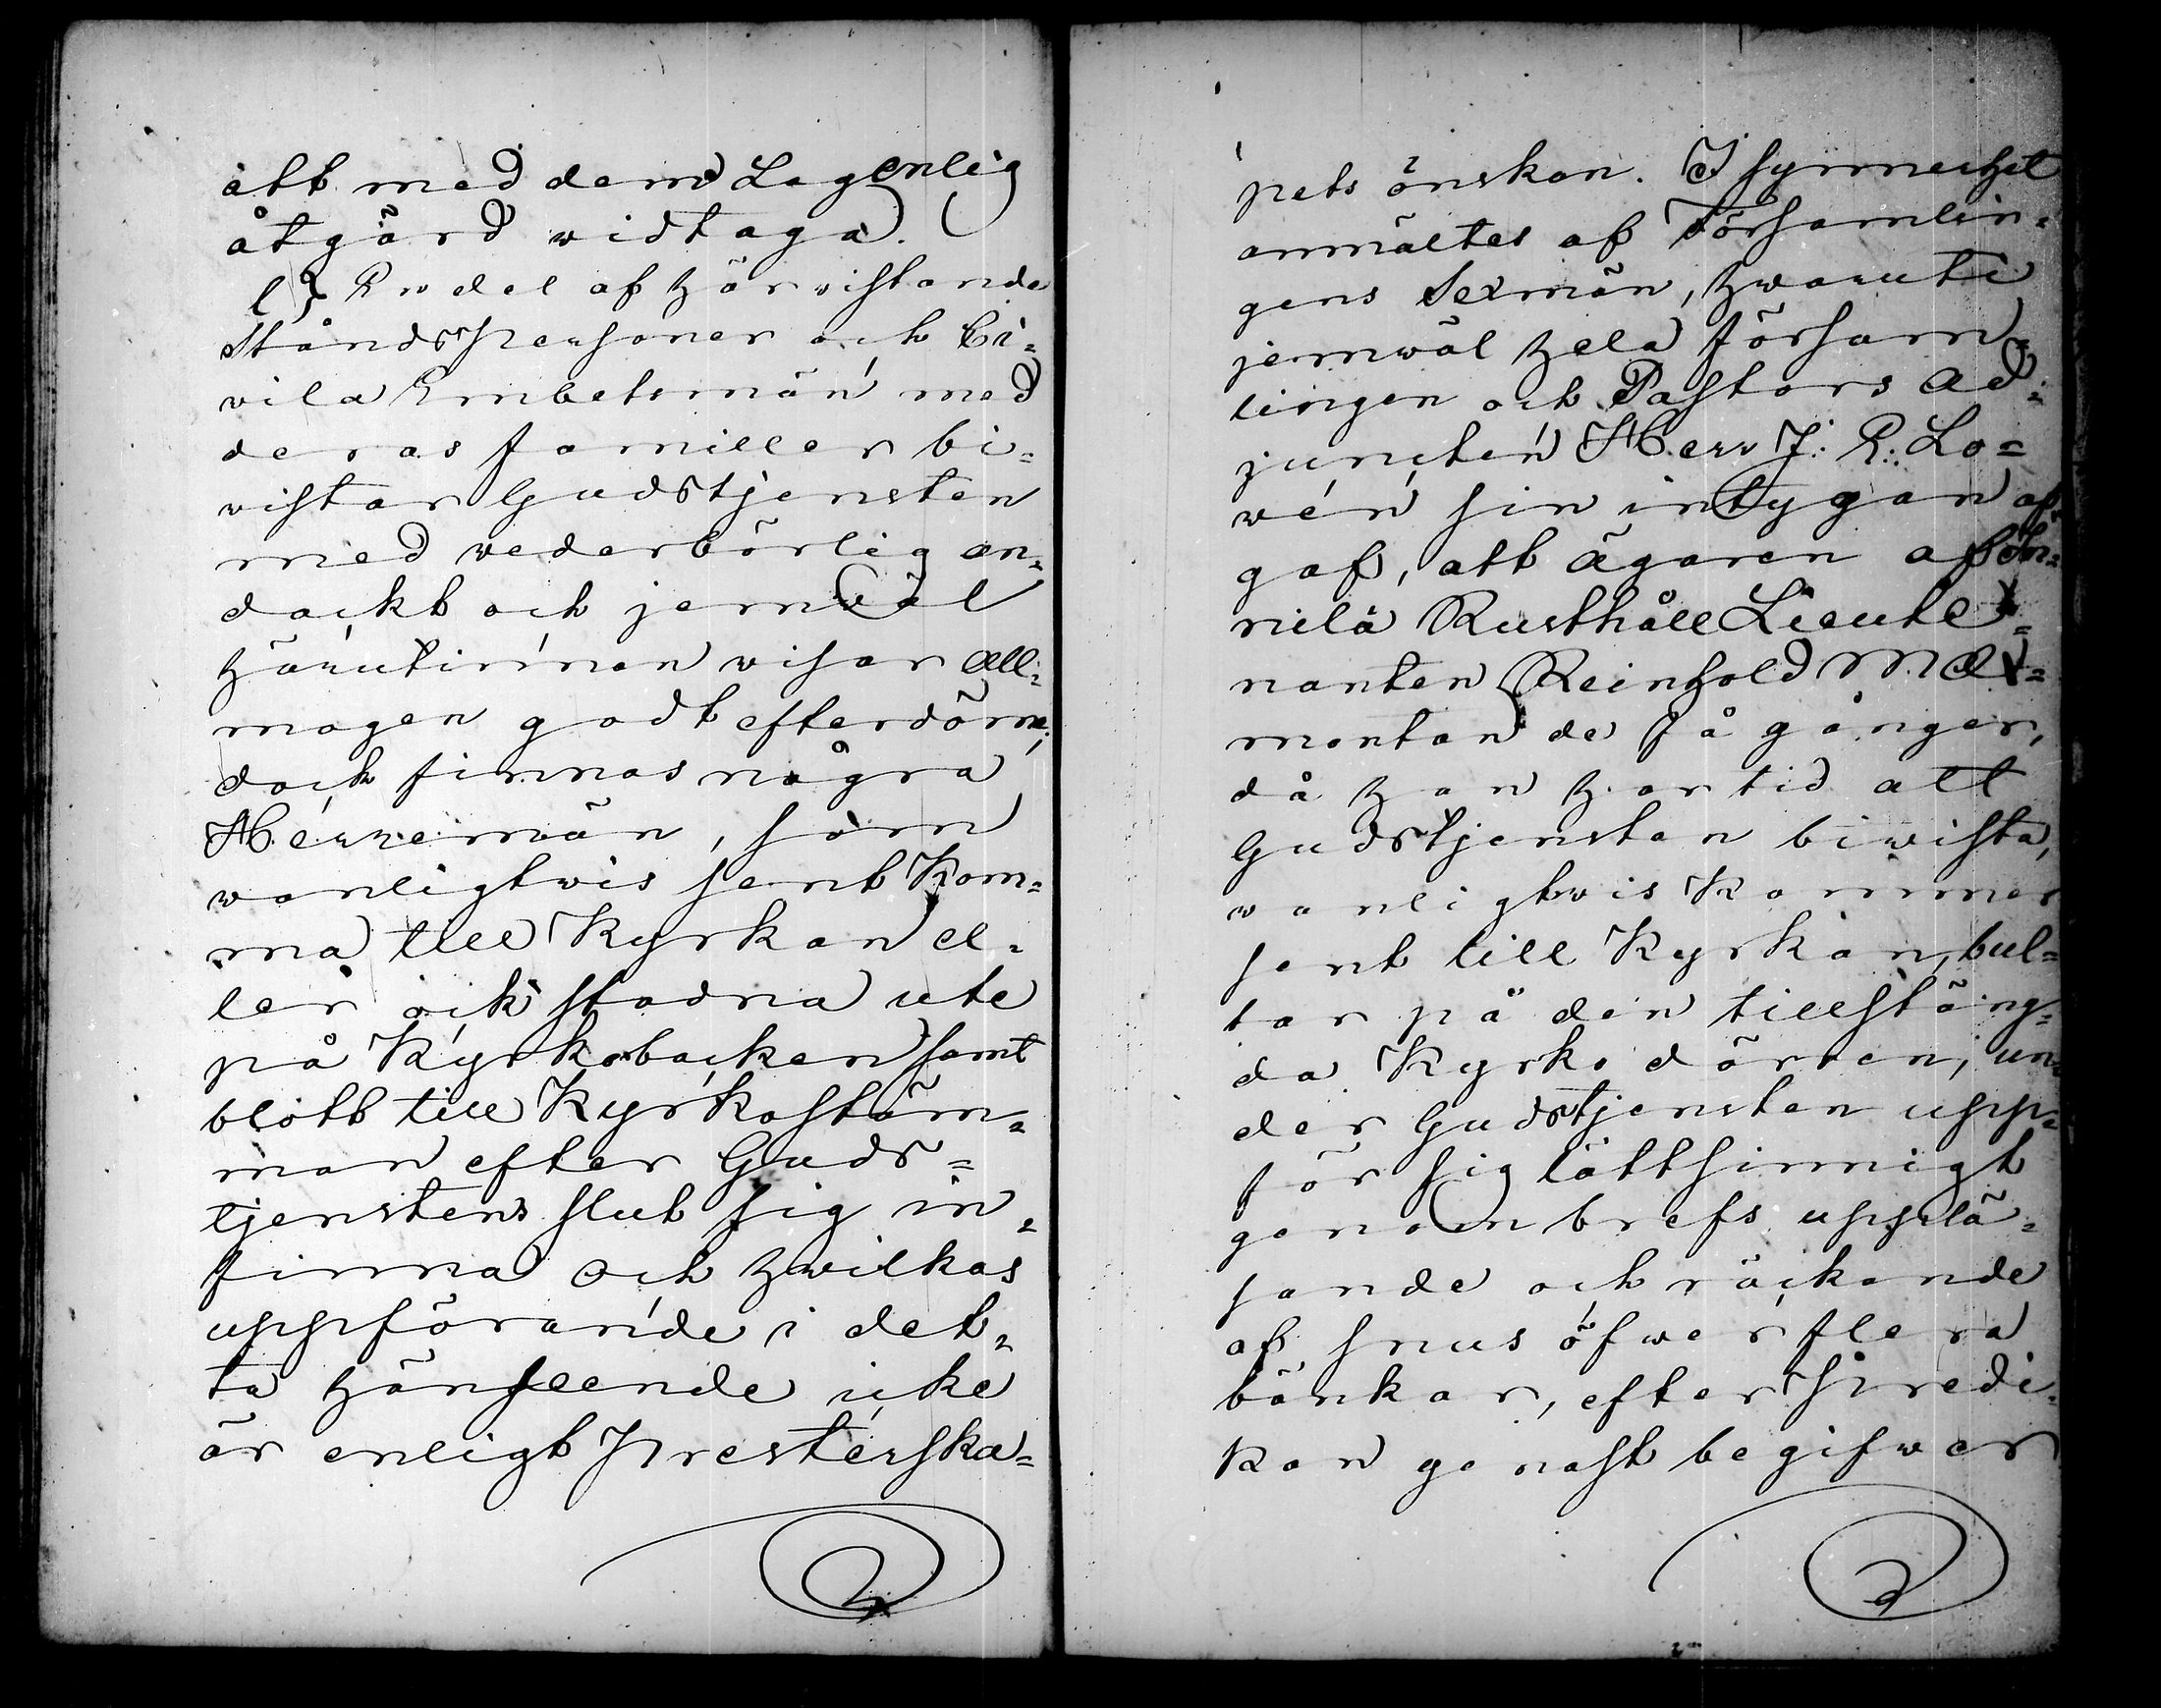 att med dem Lagenlig
åtgärd widtaga.
l} En del af härwistande
StåndsPersoner och Ci=
vila Embetsmän med
deras familler bi=
vistar Gudstjensten
med wederbörlig an=
dackt och jemwäl
härutinnan wisar All=
mogen godt efterdöme;
dock finnas några
Herremän, som
wanligtwis sent Kom=
ma till Kyrkan el=
ler ock stadna ute
på Kyrkobacken samt
blott till Kyrkostäm=
man efter Guds=
tjenstens slut sig in=
finna och hwilkas
uppförande i det=
ta hänseende icke
är enligt Presterska=
pets önskan. I synnerhet
anmältes af Församlin=
gens Sexmän, hwaruti
jemwäl hela försam=
lingen och Pastors Ad=
juncten Herr J: R: Lo=
wén sin intygan af=
gaf, att ägaren af
nilä Rusthåll Lieute=
nanten Reinhold
montan de få gånger,
då han har tid att
Gudstjensten biwista,
wanligtwis Kommer
sent till Kyrkan, bul=
tar på den tillstäng=
da Kyrko dörren, un=
der Gudstjensten upp=
för sig lättsinnigt
genom brefs upplä=
sande och räckande
af snus öfwer flera
bänkar, efter Predi=
kan genast begifwer